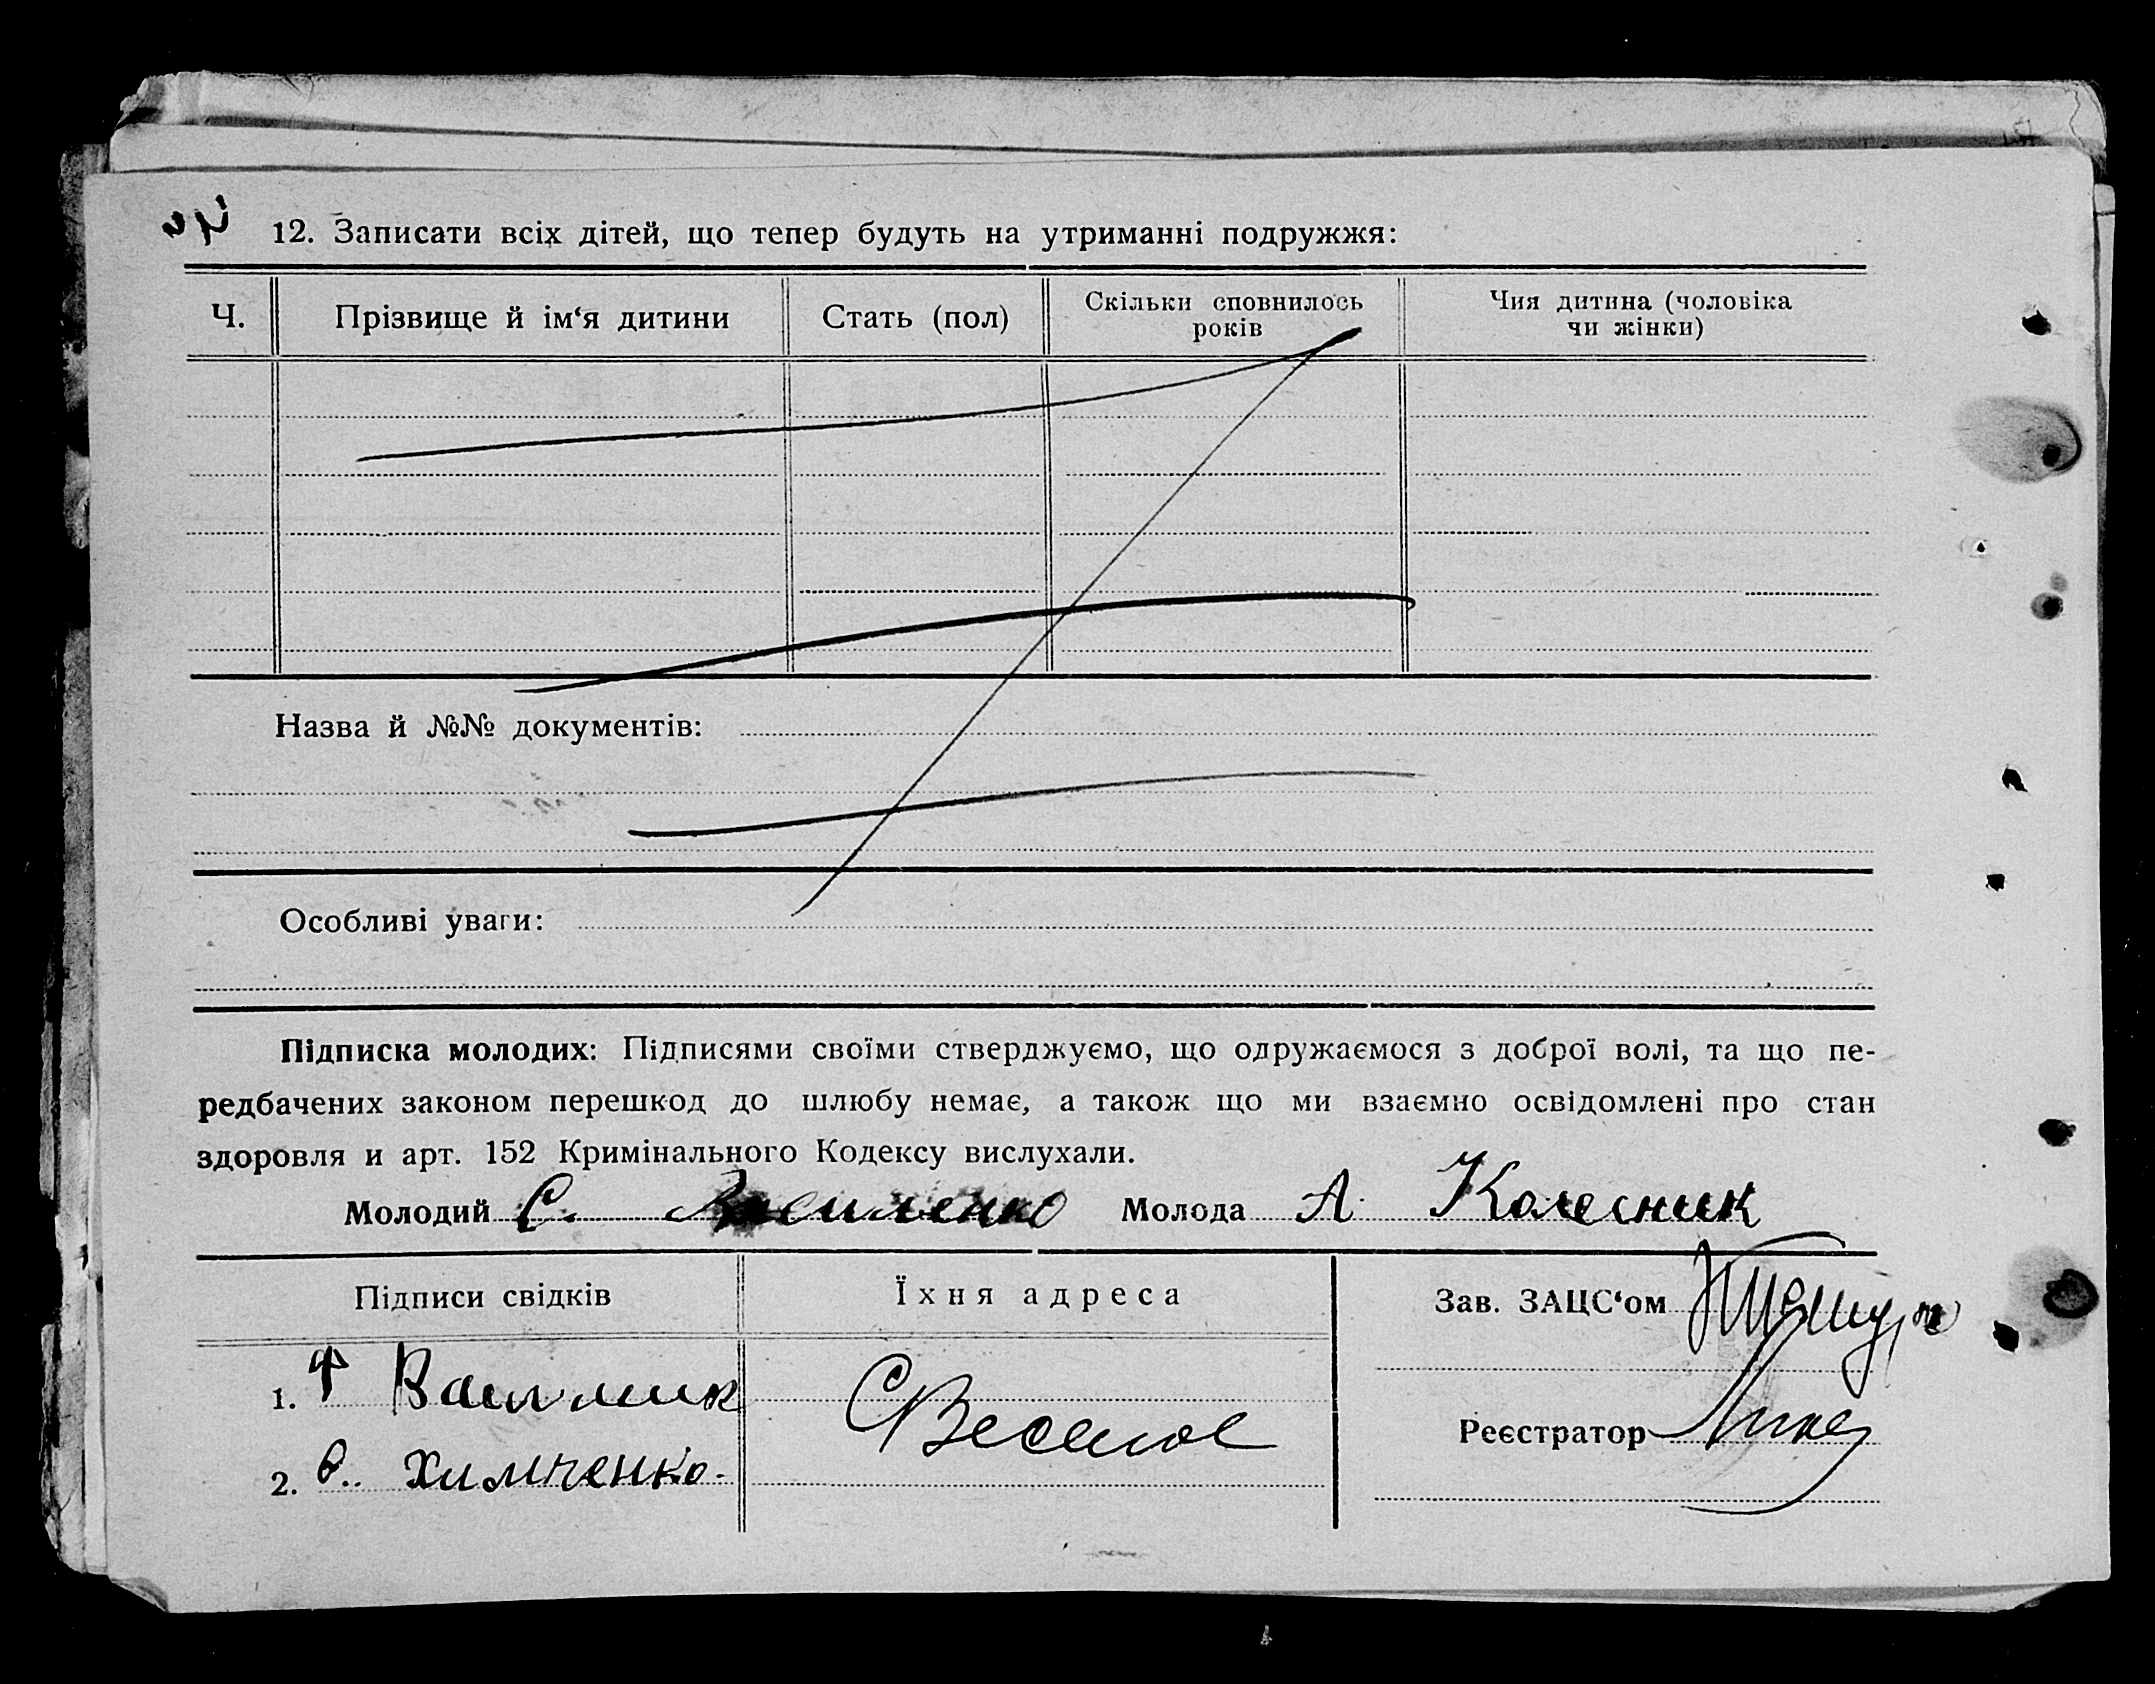 12. Записати всіх дітей, що тепер будуть на утриманні подружжя:
Ч. Прізвище й ім‘я дитини Стать (пол) Скільки сповнилось років Чия дитина (чоловіка чи жінки)
Назва й №№ документів:
Особливі уваги:
Підписка молодих: Підписями своїми стверджуємо, що одружаємося з доброї волі, та що пе-
редбачених законом перешкод до шлюбу немає, а також що ми взаємно освідомлені про стан
здоровля и арт. 152 Кримінального Кодексу вислухали.
Молодий С. Василенко Молода А. Колесник
Підписи свідків Їхня адреса Зав. ЗАЦС‘ом
1.
С Веселое
Реєстратор
2. Химченко